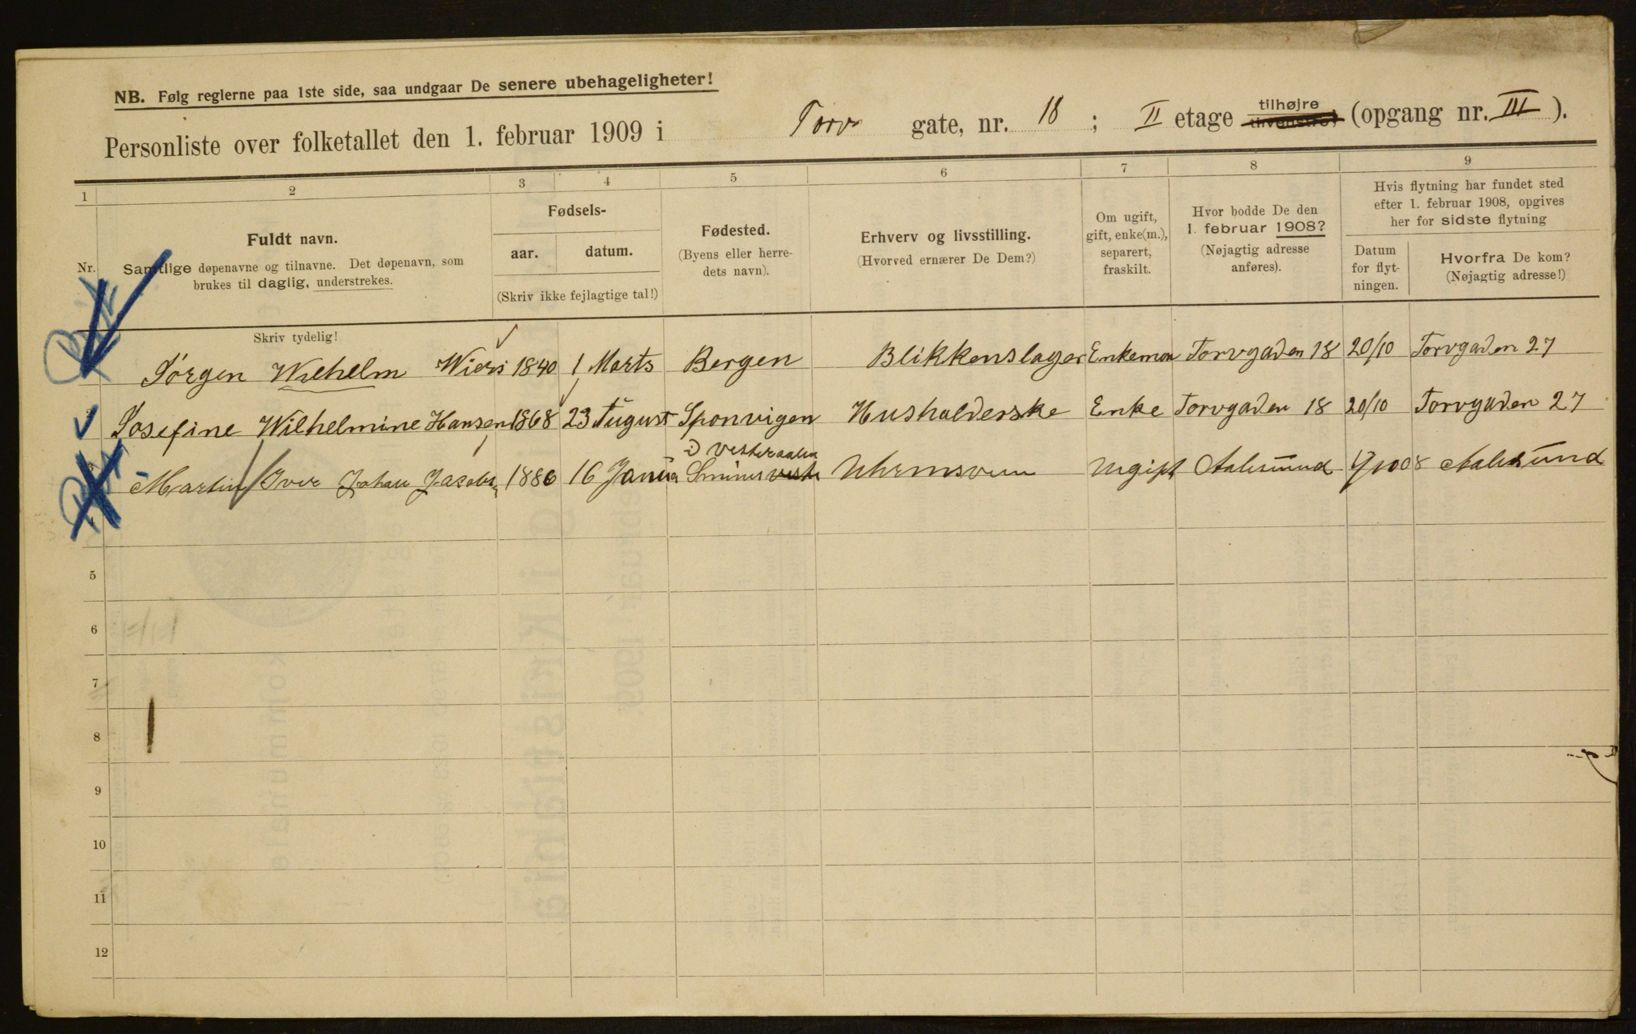 NB. Følg reglerne paa 1ste side, saa undgaar De senere ubehageligheter!
Personliste over folketallet den 1. februar 1909 i Torv gate, nr. 18 ; II etage tilhøjre (opgang nr. III ).
1 2 3 4 5 6 7 8 9
Nr.
Fuldt navn.
Samtlige døpenavne og tilnavne. Det døpenavn, som
brukes til daglig, understrekes.
Fødsels-
aar. datum.
(Skriv ikke fejlagtige tal!)
Fødested.
(Byens eller herre-
dets navn).
Erhverv og livsstilling.
(Hvorved ernærer De Dem?)
Om ugift,
gift, enke(m.),
separert,
fraskilt.
Hvor bodde De den
1. februar 1908?
(Nøjagtig adresse
anføres).
Hvis flytning har fundet sted
efter 1. februar 1908, opgives
her for sidste flytning
Datum
for flyt-
ningen.
Hvorfra De kom?
(Nøjagtig adresse!)
Skriv tydelig!
Jørgen Wilhelm Wiers 1840 1 Marts Bergen Blikkenslager Enkeman Torvgaden 18 20/10 Torvgaden 27
Josefine Wilhelmine Hansen 1868 23 August Sponvigen Husholderske Enke Torvgaden 18 20/10 Torvgaden 27
Vesteraalen
Martin Iver Johan Jacobs 1886 16 Janua Uhrmsven Ugift Aalesund Aalesund
5
6
7
8
9
10
11
12